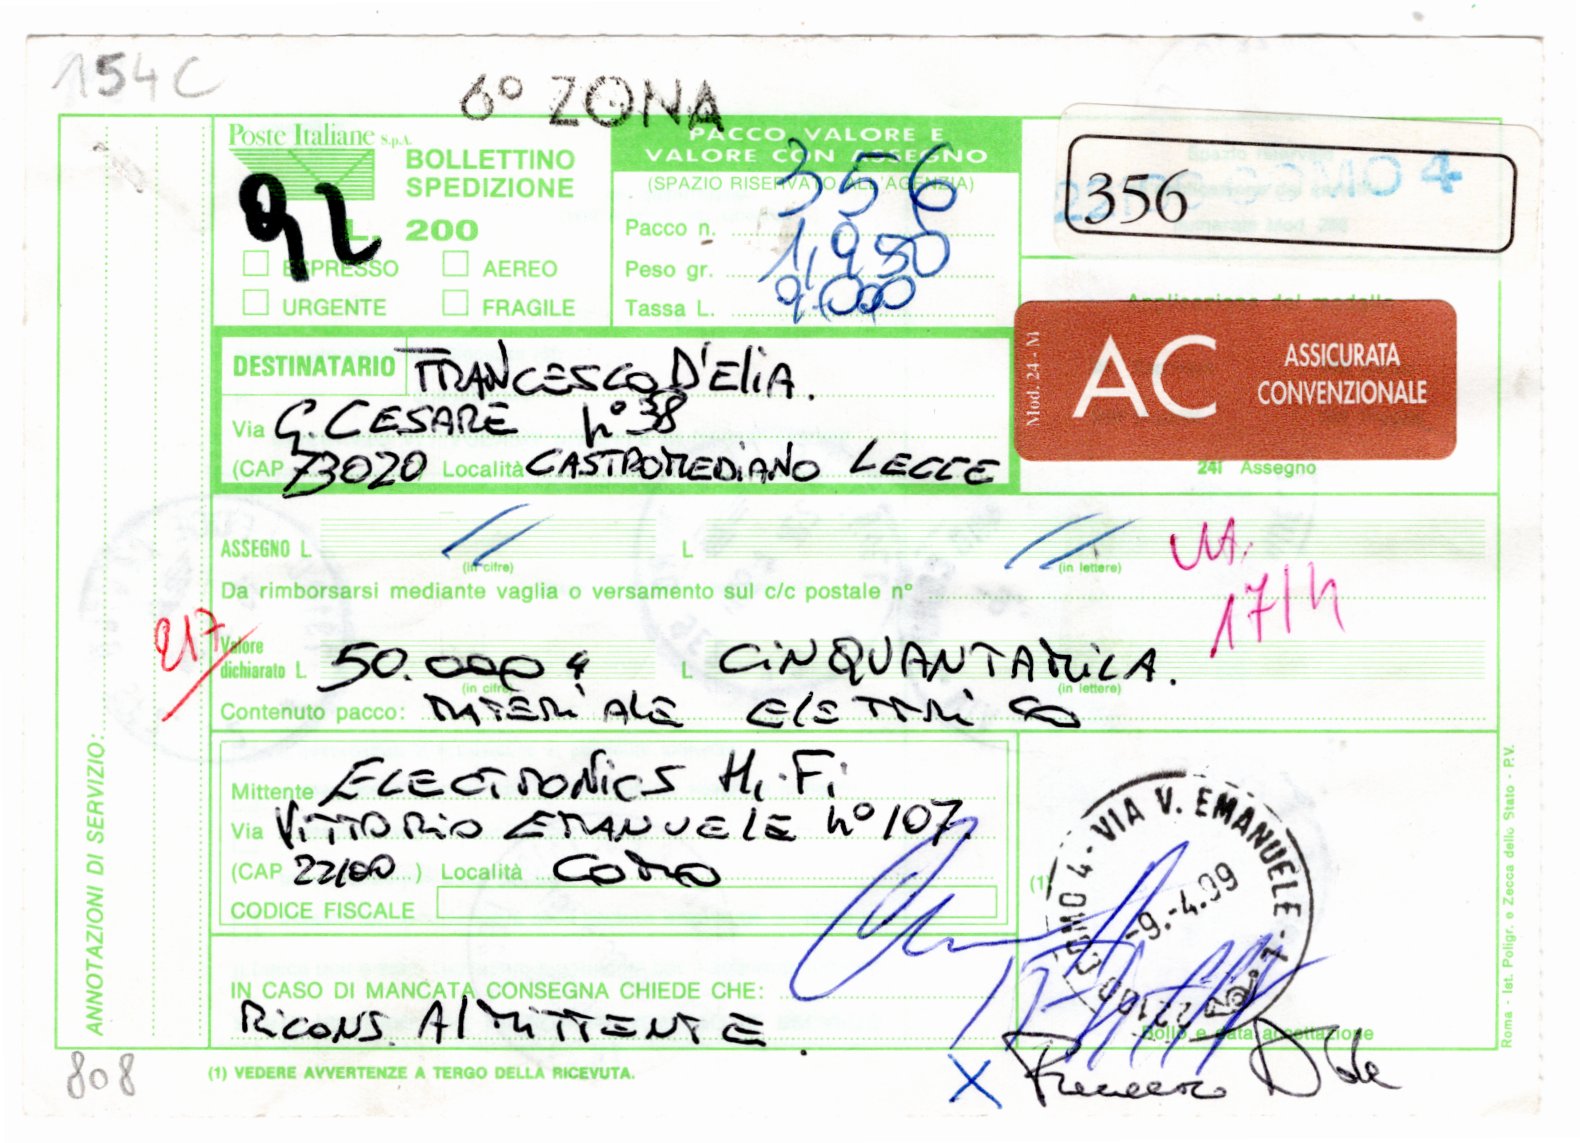 154C
6° ZONA
Poste Italiane s.p.A.
BOLLETTINO
SPEDIZIONE
L. 200
92
ESPRESSO AEREO
URGENTE FRAGILE
PACCO VALORE E
VALORE CON ASSEGNO
(SPAZIO RISERVATO ALL'AGENZIA)
Pacco n. 356
Peso gr. 1,980
Tassa L. 9.000
356
COMO 4
Mod. 24 - M
AC ASSICURATA
CONVENZIONALE
24I Assegno
DESTINATARIO FRANCESCO D'ELIA.
Via G. CESARE n° 38
(CAP 73020) Località CASTROMEDIANO LECCE
ASSEGNO L. (in cifre) L. (in lettere)
Da rimborsarsi mediante vaglia o versamento sul c/c postale n°
17/4
217
Valore
dichiarato L. 50.000 (in cifre) L. CINQUANTAMILA. (in lettere)
Contenuto pacco: MATERIALE ELETTRICO
Mittente ELECTRONICS Hi-Fi
Via VITTORIO EMANUELE n° 107
(CAP 22100) Località COMO
CODICE FISCALE
(1)
22100 COMO 4 - VIA V. EMANUELE
-9.-4.99
Bollo e data accettazione
IN CASO DI MANCATA CONSEGNA CHIEDE CHE:
RICONS. Al MITTENTE.
X Francesco D'Elia
ANNOTAZIONI DI SERVIZIO:
Roma - Ist. Poligr. e Zecca dello Stato - P.V.
808
(1) VEDERE AVVERTENZE A TERGO DELLA RICEVUTA.